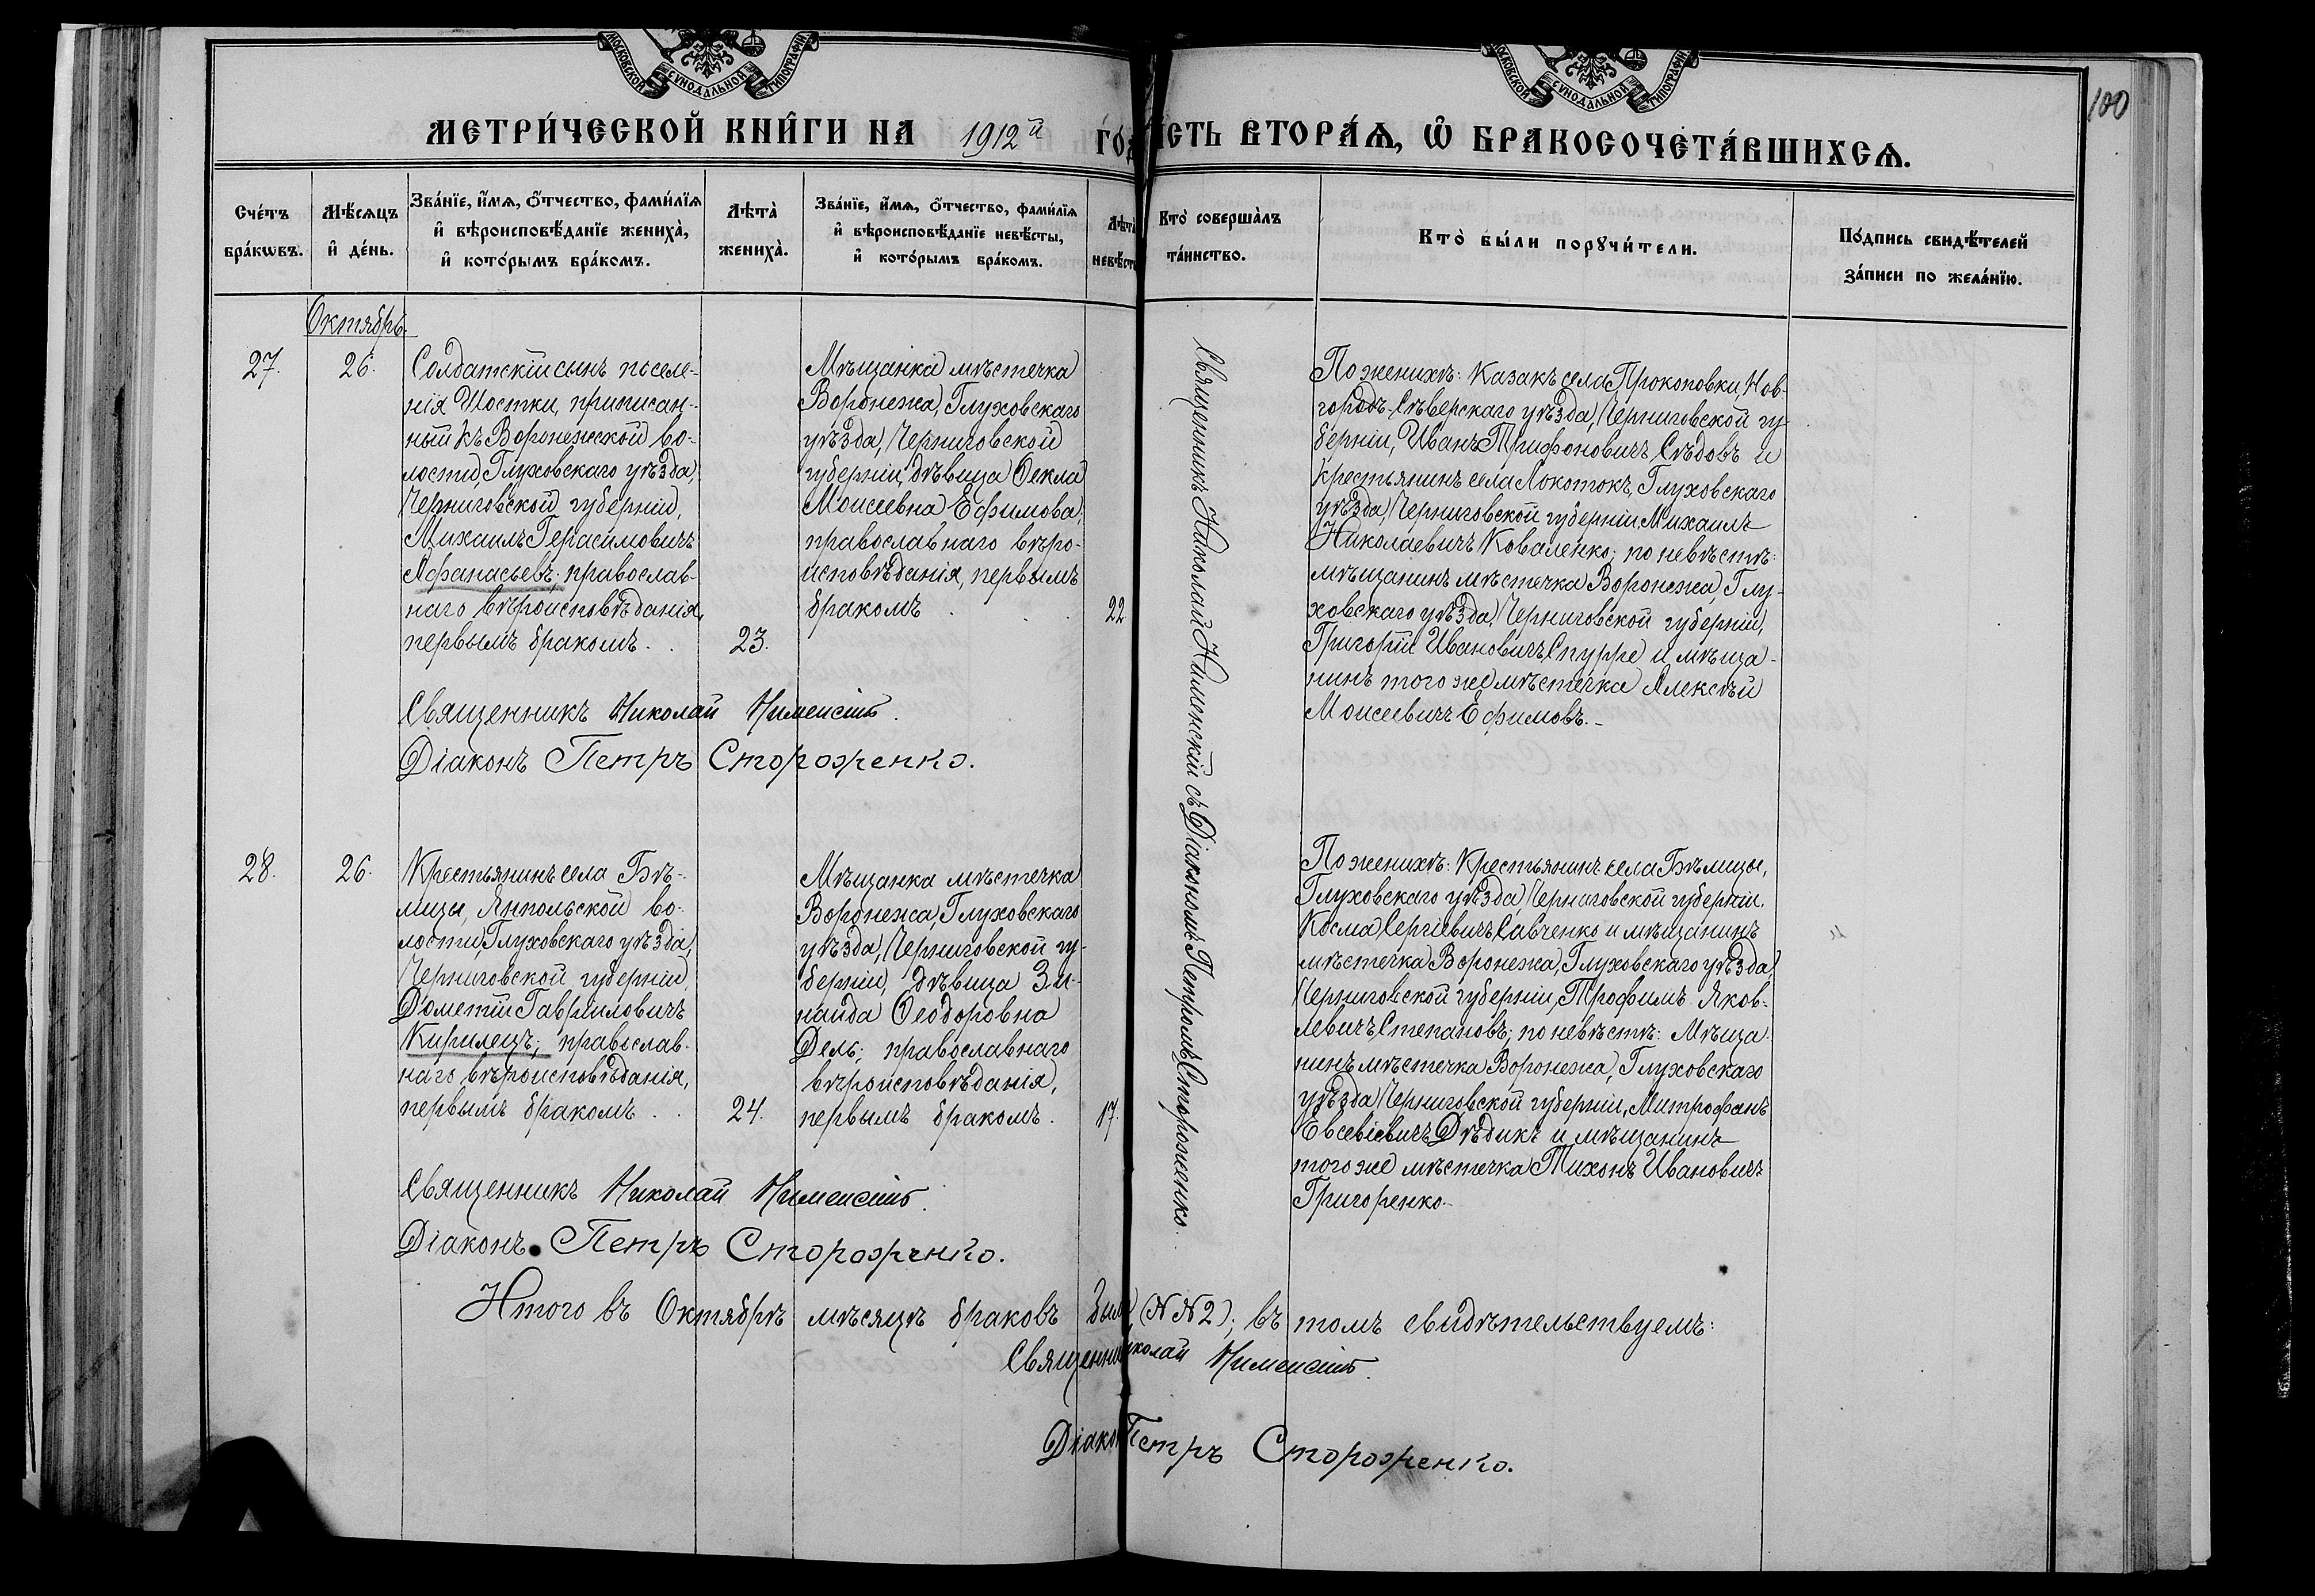 МОСКОВСКОЙ СУНОДАЛЬНОЙ ТИПОГРАФІИ
МОСКОВСКОЙ СУНОДАЛЬНОЙ ТИПОГРАФІИ
100
МЕТРИ́ЧЕСКОЙ КНИ̑ГИ НА 1912й ГОД
СТЬ ВТОРА́Ѧ, Ѽ БРАКОСОЧЕТА́ВШИХСѦ.
Сче́тъ бра́кѡвъ.
Мѣ́сѧцъ и҆ де́нь.
Зва́нїе, и҆́мѧ, ѻ҆́тчество, фами́лїѧ и҆ вѣроисповѣ́данїе жениха̀, и҆ кото́рымъ бра́комъ.
Лѣта̀ жениха̀.
Зва́нїе, и҆́мѧ, ѻ҆́тчество, фами́лїѧ и҆ вѣроисповѣ́данїе невѣ́сты, и҆ кото́рымъ бра́комъ.
Лѣта̀ невѣ́сты
Кто̀ соверша́лъ та́инство.
Кто̀ бы́ли порꙋчи́тели.
По́дпись свидѣ́телей за́писи по жела́нїю.
Октябрь.
27.
26.
Солдатскій сынъ поселе-
нія Шостки, приписан-
ный къ Воронежской во-
лости, Глуховскаго уѣзда,
Черниговской губерніи,
Михаилъ Герасимовичъ
Афанасьевъ; православ-
наго вѣроисповѣданія,
первымъ бракомъ.
23.
Мѣщанка мѣстечка
Воронежа, Глуховскаго
уѣзда, Черниговской
губерніи, дѣвица Ѳекла
Моисеевна Ефимова,
православнаго вѣро-
исповѣданія, первымъ
бракомъ.
22
Священникъ Николай Нименскій съ Діакономъ Петромъ Стороженко.
По женихѣ: Казакъ села Прокоповки, Нов-
городъ-Сѣверскаго уѣзда, Черниговской гу-
берніи, Иванъ Трифоновичъ Сѣдовъ и
крестьянинъ села Локотокъ, Глуховскаго
уѣзда, Черниговской губерніи, Михаилъ
Николаевичъ Коваленко; по невѣстѣ:
мѣщанинъ мѣстечка Воронежа, Глу-
ховскаго уѣзда, Черниговской губерніи,
Григорій Ивановичъ Спурре и мѣща-
нинъ того же мѣстечка Алексѣй
Моисеевичъ Ефимовъ.
Священникъ Николай Нименскій.
Діаконъ Петръ Стороженко.
28.
26.
Крестьянинъ села Бѣ-
лицы, Янпольской во-
лости, Глуховскаго уѣзда,
Черниговской губерніи,
Дометій Гавриловичъ
Кирилецъ; православ-
наго вѣроисповѣданія,
первымъ бракомъ.
24.
Мѣщанка мѣстечка
Воронежа, Глуховскаго
уѣзда, Черниговской гу-
берніи, дѣвица Зи-
наида Ѳеодоровна
Дель; православнаго
вѣроисповѣданія,
первымъ бракомъ.
17.
По женихѣ: Крестьянинъ села Бѣлицы,
Глуховскаго уѣзда, Черниговской губерніи,
Косма Сергіевичъ Савченко и мѣщанинъ
мѣстечка Воронежа, Глуховскаго уѣзда,
Черниговской губерніи, Трофимъ Яков-
левичъ Степановъ; по невѣстѣ: Мѣща-
нинъ мѣстечка Воронежа, Глуховскаго
уѣзда, Черниговской губерніи, Митрофанъ
Евсевіевичъ Дѣдикъ и мѣщанинъ
того же мѣстечка Тихонъ Ивановичъ
Григоренко.
Священникъ Николай Нименскій.
Діаконъ Петръ Стороженко.
Итого въ Октябрѣ мѣсяцѣ браковъ (№№ 2); въ томъ свидѣтельствуемъ:
Священни иколай Нименскій.
Діако Петръ Стороженко.